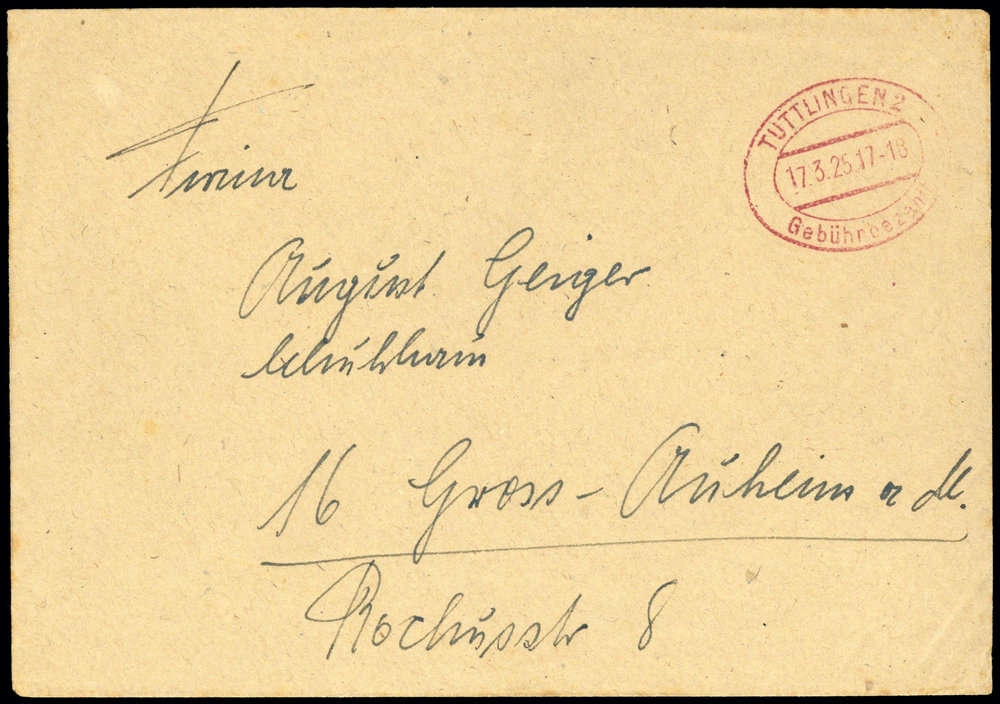 TUTTLINGEN 2
17.3.25.17-18
Gebührbezahlt
Firma
August Geiger
Schuhhaus
16 Gross-Auheim a M.
Rochusstr 8